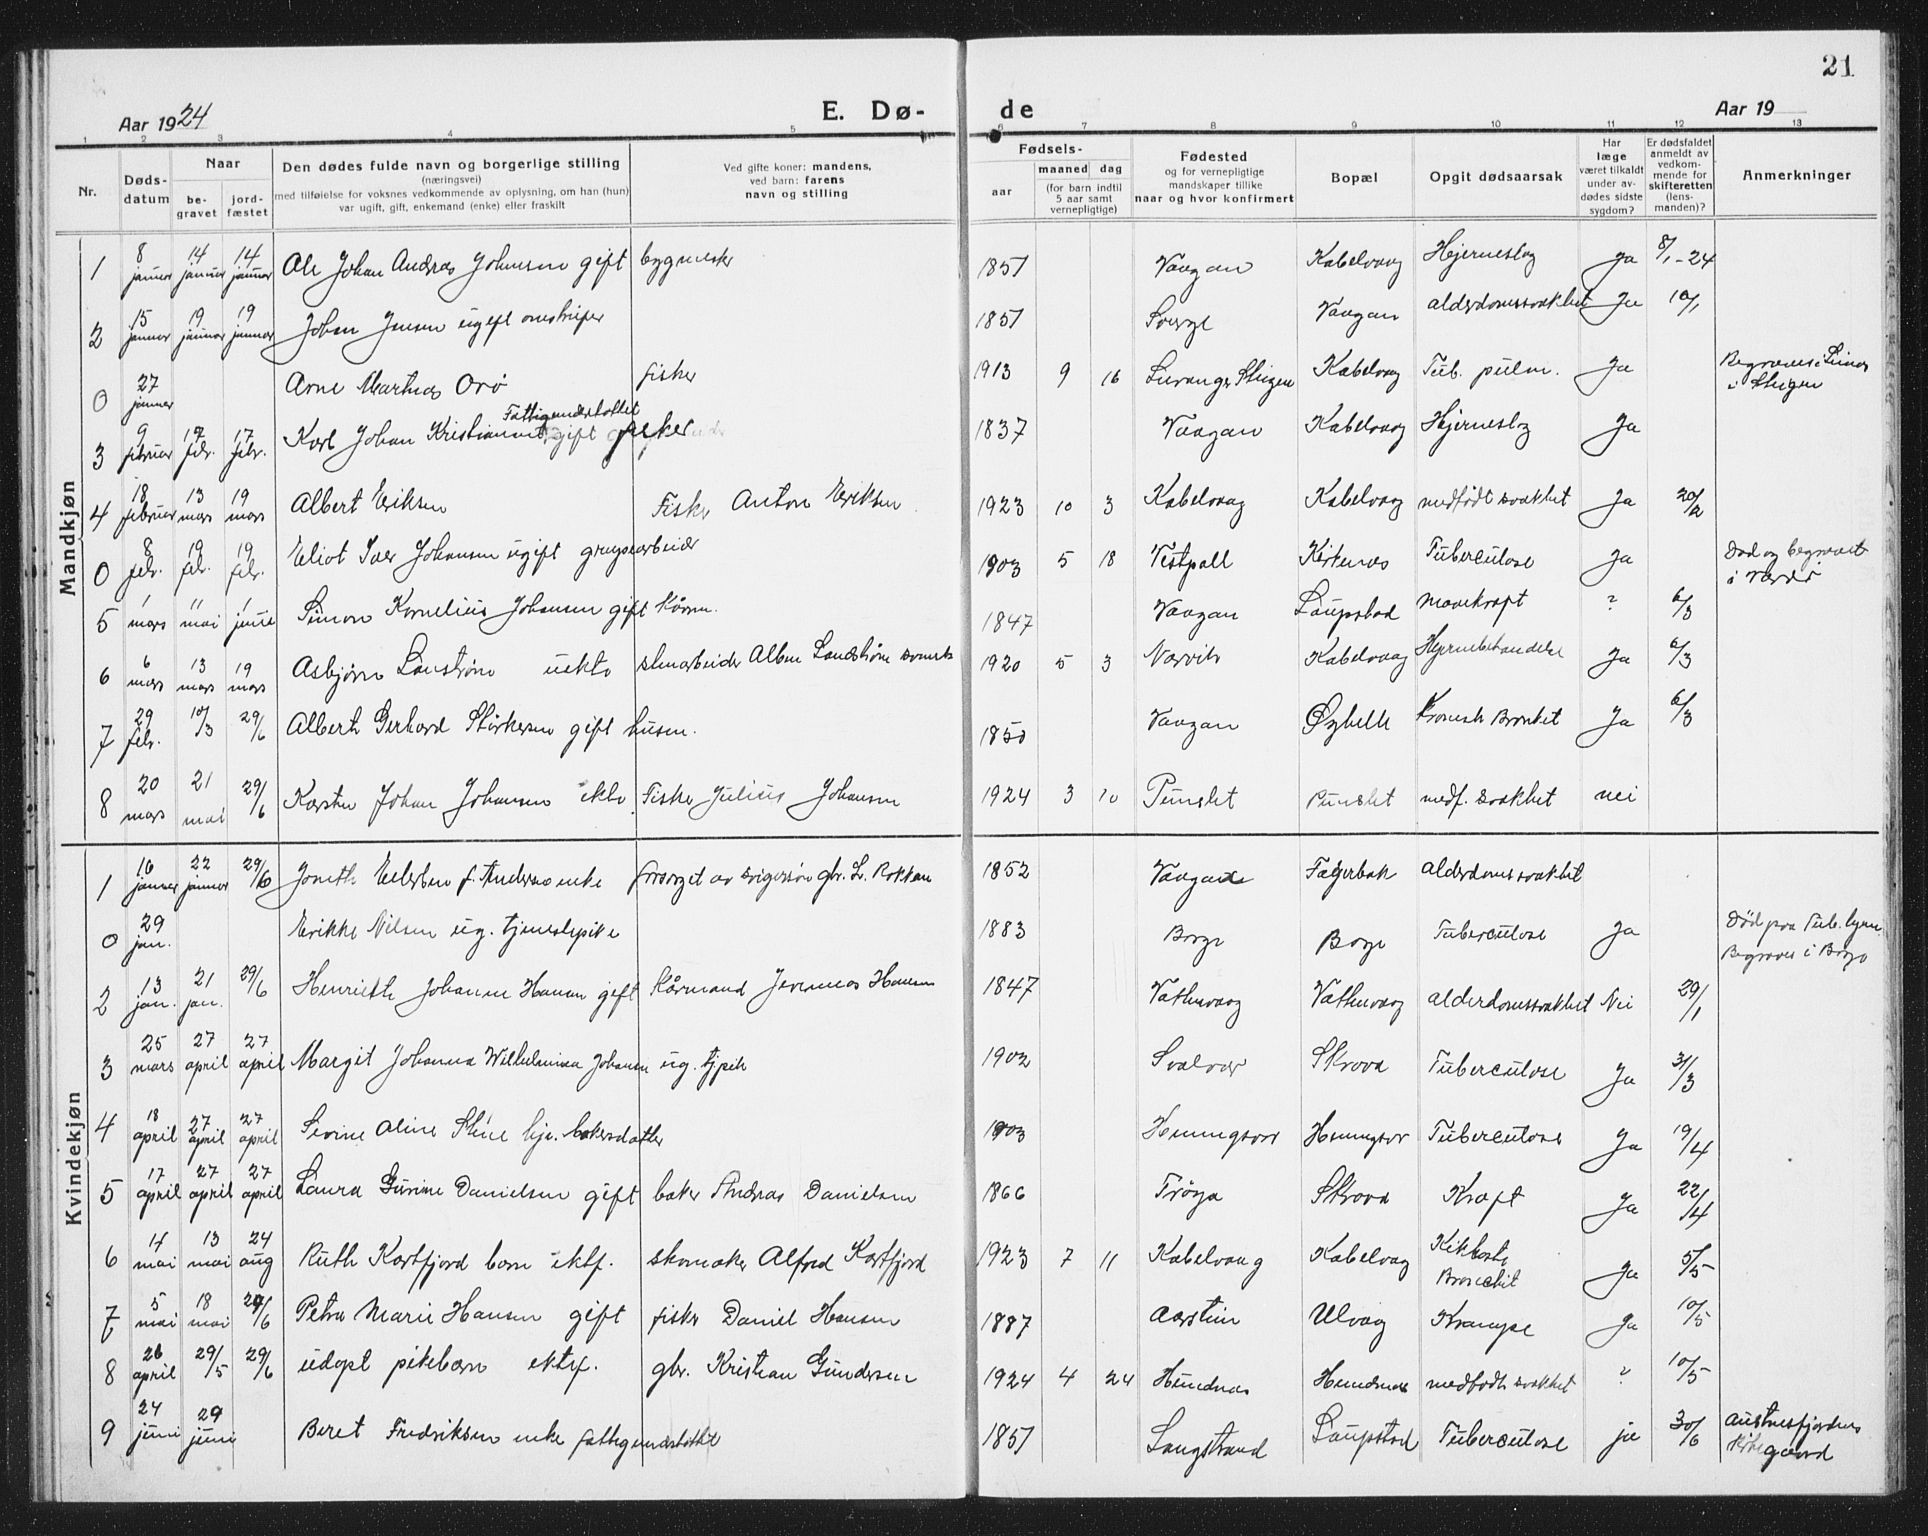 21
Aar 1924
E. Dø-
de
Aar 19
1 2 3 4 5 6 7 8 9 10 11 12 13
Nr.
Døds-
datum
Naar
be-
gravet
jord-
fæstet
Den dødes fulde navn og borgerlige stilling
(næringsvei)
med tilføielse for voksnes vedkommende av oplysning, om han (hun)
var ugift, gift, enkemand (enke) eller fraskilt
Ved gifte koner: mandens,
ved barn: farens
navn og stilling
Fødsels-
aar
maaned dag
(for barn indtil
5 aar samt
vernepligtige)
Fødested
og for vernepligtige
mandskaper tillike
naar og hvor konfirmert
Bopæl
Opgit dødsaarsak
Har
læge
været tilkaldt
under av-
dødes sidste
sygdom?
Er dødsfaldet
anmeldt av
vedkom-
mende for
skifteretten
(lens-
manden)?
Anmerkninger
Mandkjøn
1 8 januar 14 januar 14 januar Ole Johan Andreas Johansen gift 1851 Vaagan Kabelvaag Hjerneslag Ja 8/1-24
2 15 januar 19 januar 19 januar Johan Jensen ugift 1851 Sverge Vaagan alderdomssvakhet Ja 10/1
0 27 januar Arne Martnæs Orø fisker 1913 9 16 Kabelvaag Tub. pulm. Ja
3 9 februar 17 febr. 17 febr. Karl Johan Kristiansen gift Fattigunderstøttet fisker 1837 Vaagan Kabelvaag Hjerneslag Ja
4 18 februar 13 mars 19 mars Albert Eriksen Fisker Anton Eriksen 1923 10 3 Kabelvaag Kabelvaag medfødt svakhet Ja 20/2
0 8 febr. 19 febr. 19 febr. Eliot Iver Johansen ugift grupearbeider 1903 5 18 Vestpoll Kirkenæs Tuberculose Ja Død og begravet
i Vardø
5 1 mars 11 mai 1 june Simon Kornelius Johansen gift Kårm. 1847 Vaagan Laupstad Mavekræft ? 6/3
6 6 mars 13 mars 19 mars Asbjørn Lanstrøm uekte 1920 5 3 Narvik Kabelvaag Ja 6/3
7 29 febr. 10/3 29/6 Albert Gerhard Størkersen gift husm. 1850 Vaagan Øyhelle Kronisk Bronkit Ja 6/3
8 20 mars 21 mai 29/6 Karsten Johan Johansen ekte Fisker Julius Johansen 1924 3 10 Pundslet Pundslet medf. svakhet nei
Kvindekjøn
1 16 januar 22 januar 29/6 enke forsørget av svigersøn gbr. L. Rokkan 1852 Vaagan Fagerbak alderdomssvakhet
0 29 jan. Erikke Nilsen ug. tjenestepike 1883 Borge Borge Tuberculose Ja Død paa Tub.hjem.
Begraves i Borge
2 13 jan. 21 jan. 29/6 Henriette Johanne Hansen gift Kårmand Jeremias Hansen 1847 Vatnevaag Vatnevaag alderdomssvakhet Nei 29/1
3 25 mars 27 april 27 april Margit Johanna Wilhelmina Johansen ug. tjpik 1902 Svolvær Skrova Tuberculose Ja 31/3
4 18 april 27 april 27 april Sevine Aline Stene hjv. bakersdatter 1903 Henningsvær Henningsvær Tuberculose Ja 19/4
5 17 april 27 april 27 april Laura Gurine Danielsen gift baker Andreas Danielsen 1866 Frøya Skrova Kræft Ja 22/4
6 14 mai 13 mai 24 aug Ruth Kartfjord barn ektf. skomaker Alfred Kartfjord 1923 7 11 Kabelvaag Kabelvaag Kikhoste
Bronchit Ja 5/5
7 5 mai 18 mai 29/6 Petra Marie Hansen gift fisker Daniel Hansen 1887 Aarstein Ulvaag Krampe Ja 10/5
8 26 april 29/5 29/6 udøpt pikebarn ektef. gbr. Kristian Gundersen 1924 4 24 Hundnæs Hundnæs medfødt svakhet ? 10/5
9 24 juni 29 juni Beret Fredriksen enke fattigunderstøttet 1851 Langstrand Laupstad Tuberculose ja 30/6 Austnesfjordens
Kirkegaard